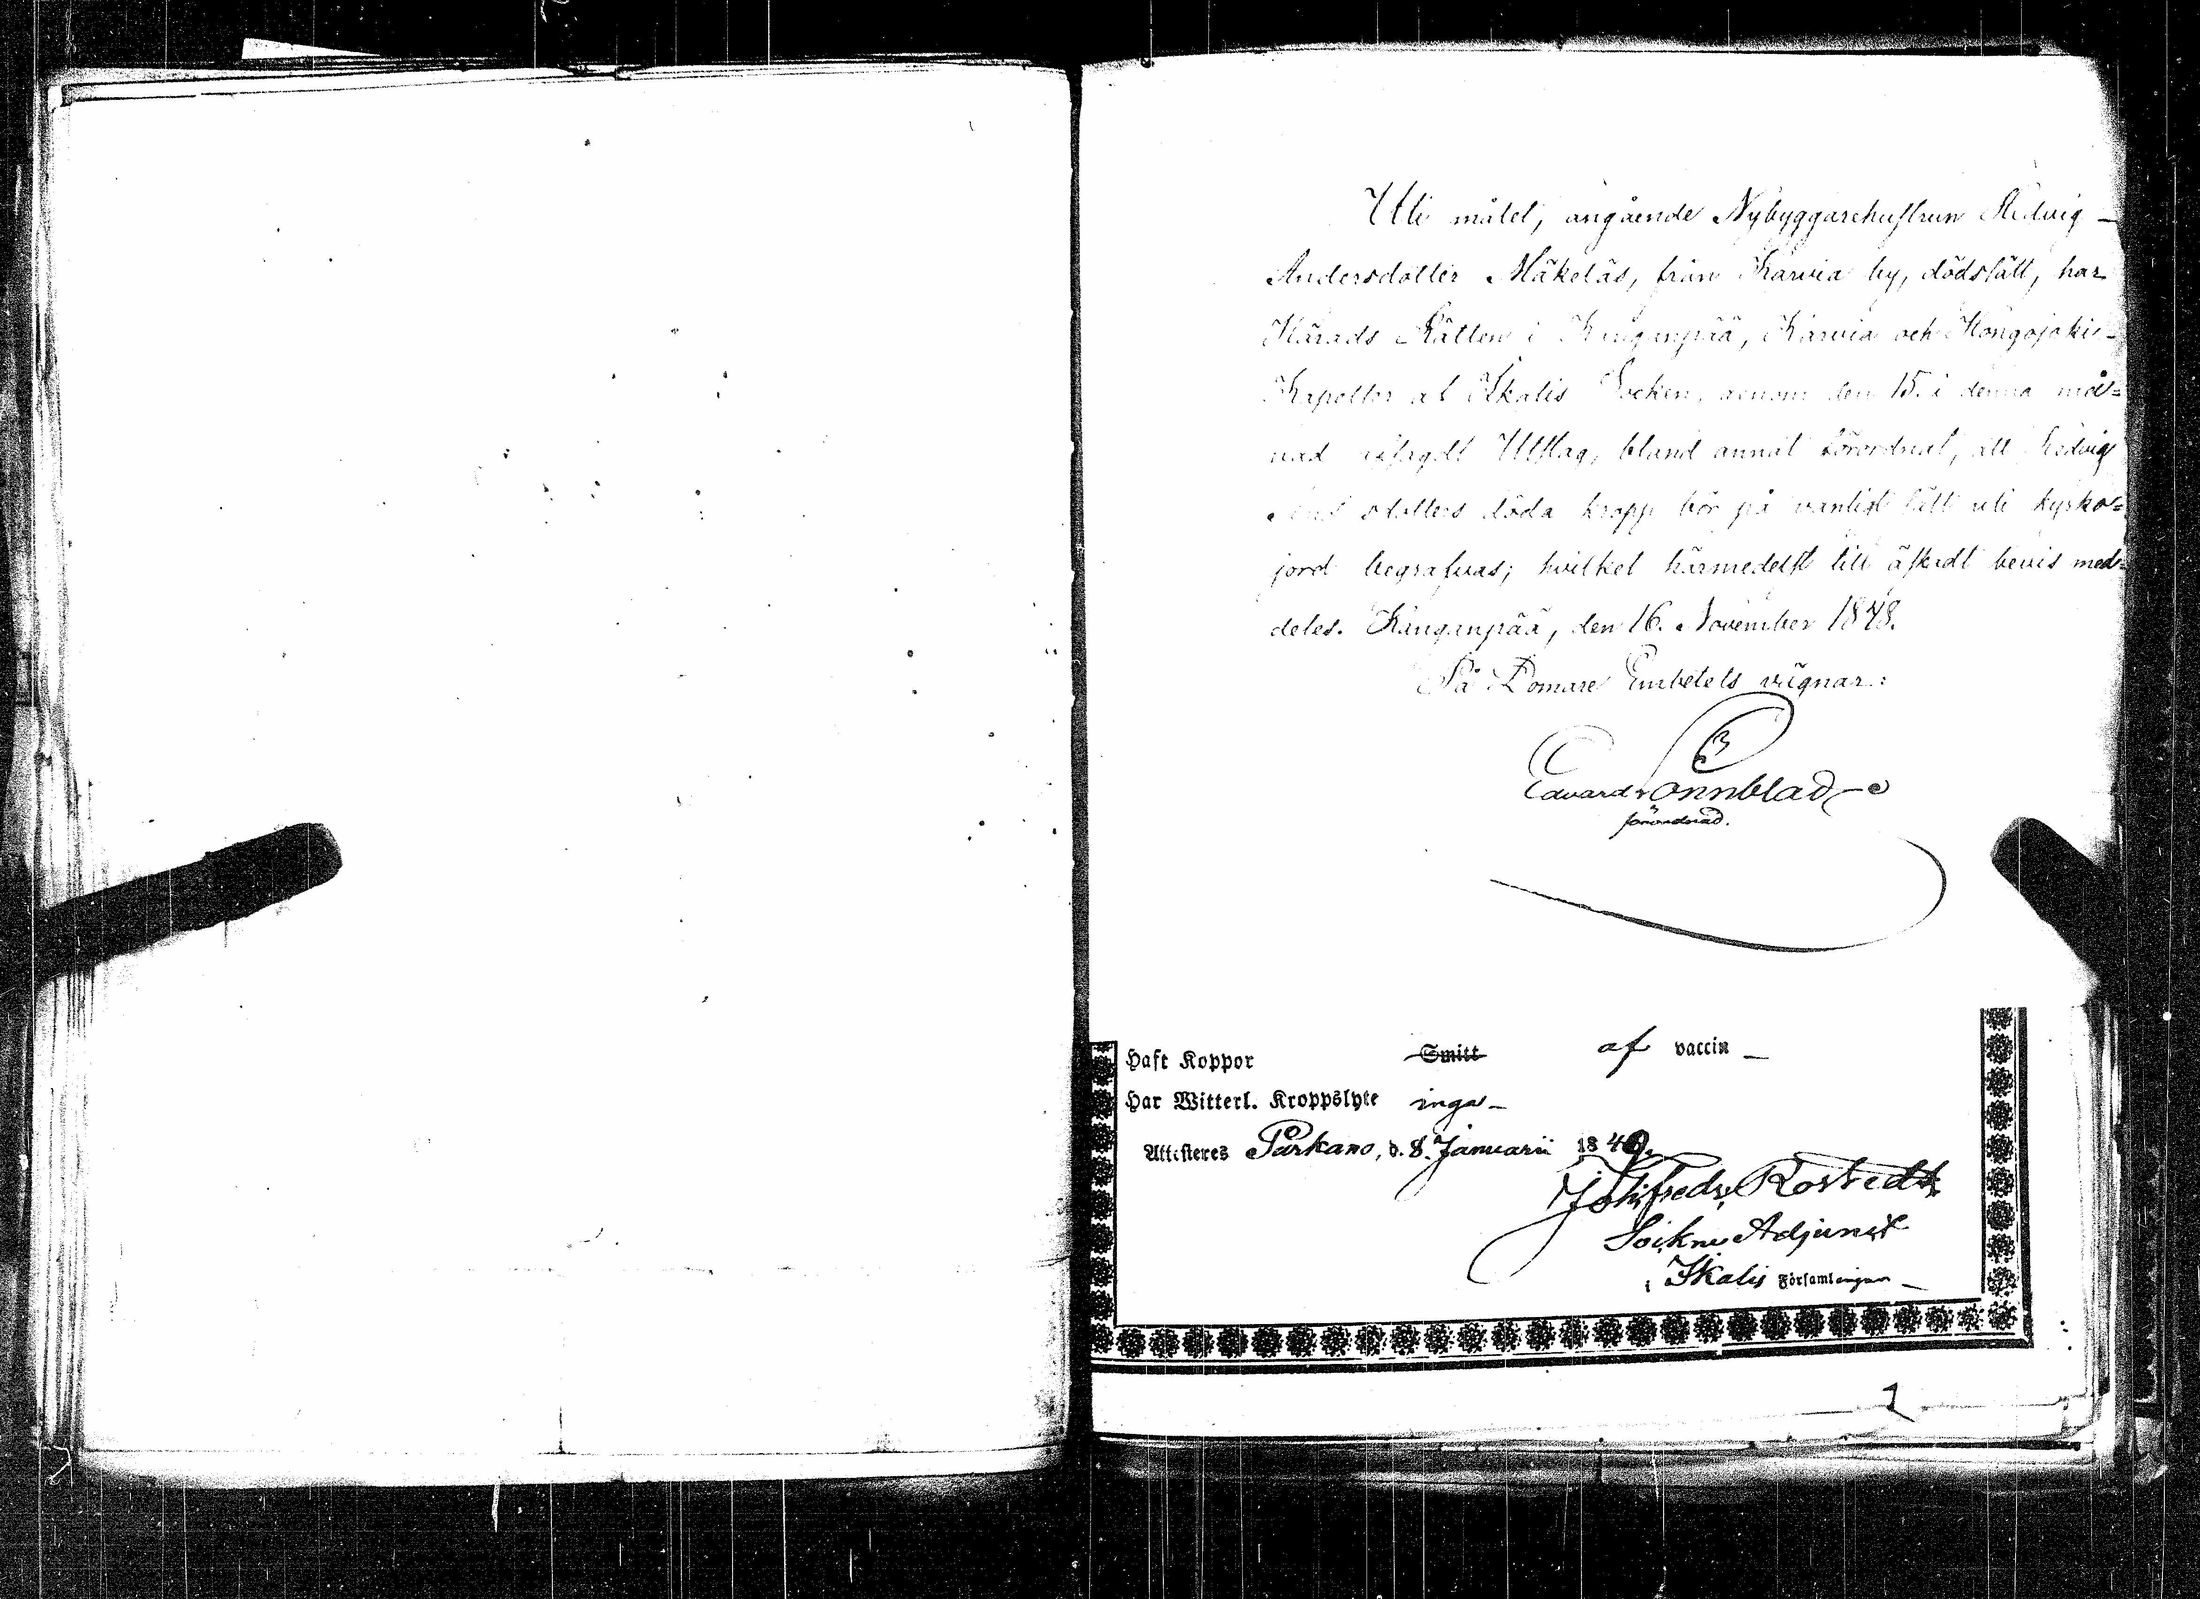 Uti målet, angående Nybyggarehustrun Hedvig
Andersdotter Mäkeläs, från Karvia by, dödssätt, har
Härads Rätten i Kanganpää, Karvia och Hongojoki
Kapeller af Ikalis Socken, genom den 15. i denna må=
nad afsagdt Utslag, bland annat förordnat, att Hedvig
Andersdotters döda kropp bör på vanligt sätt uti kyrko=
jord begrafvas; hvilket härmedelst till äskadt bevis med=
deles. Kanganpää, den 16. November 1848.
På Domare Embetets vägnar:
Edvard Lönnblad
förordnad.
Haft Koppor Smitt af vaccin
Har Witterl. Kroppslyte inga
Attesteres Parkano, d. 8. Januarii 1849.
Rostedt
Sockne Adjunct
i Ikalis Församlingar
1